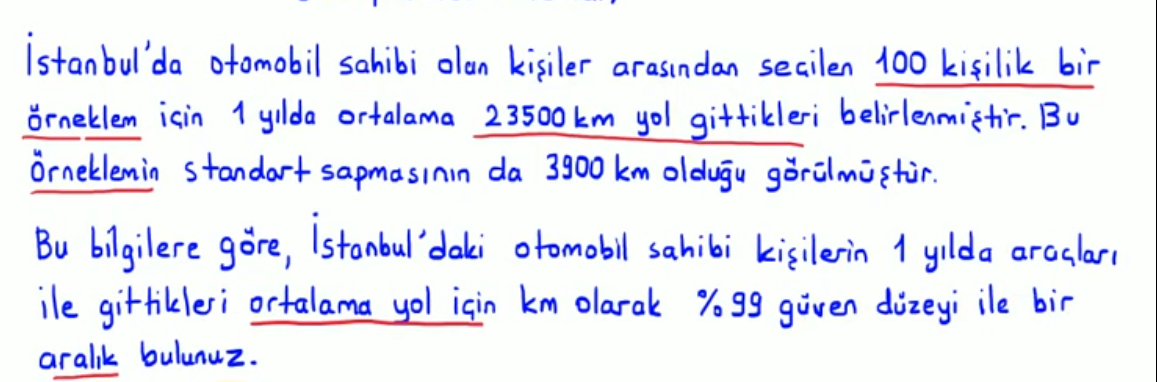 İstanbul'da otomobil sahibi olan kişiler arasından seçilen 100 kişilik bir
örneklem için 1 yılda ortalama 23500 km yol gittikleri belirlenmiştir. Bu
Örneklemin standart sapmasının da 3900 km olduğu görülmüştür.
Bu bilgilere göre, İstanbul'daki otomobil sahibi kişilerin 1 yılda araçları
ile gittikleri ortalama yol için km olarak %99 güven düzeyi ile bir
aralık bulunuz.